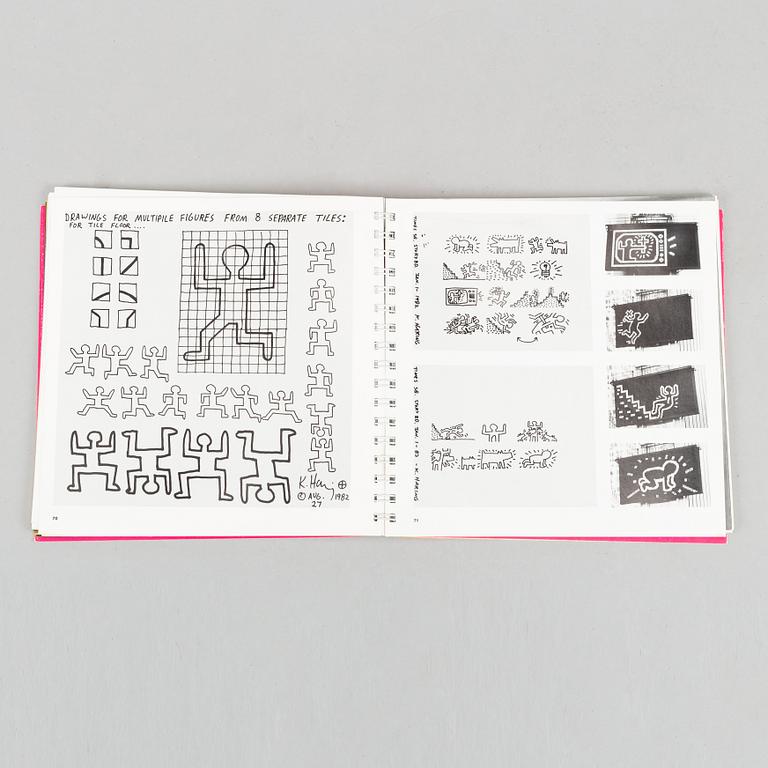 DRAWINGS FOR MULTIPLE FIGURES FROM 8 SEPARATE TILES:
FOR TILE FLOOR....
K. Haring
© AUG. 1982
27
70
TIMES SQ. STORYBD. JAN. 1982 K. HARING
TIMES SQ. STORYBD. JAN. 1982 - K. HARING
71